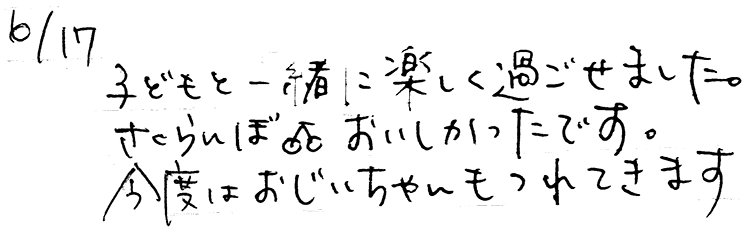 6/17
子どもと一緒に楽しく過ごせました。
さくらんぼ🍒おいしかったです。
今度はおじいちゃんもつれてきます